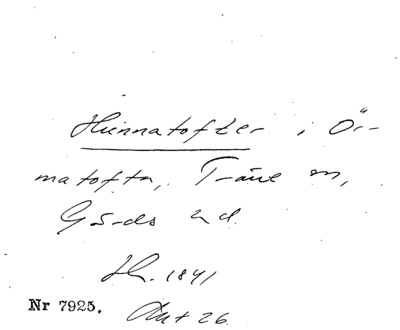 Hunnatofter i Ör-
matofta, Träne sn,
Gärds hd.
H. 1841
Nr 7925. Akt 26.